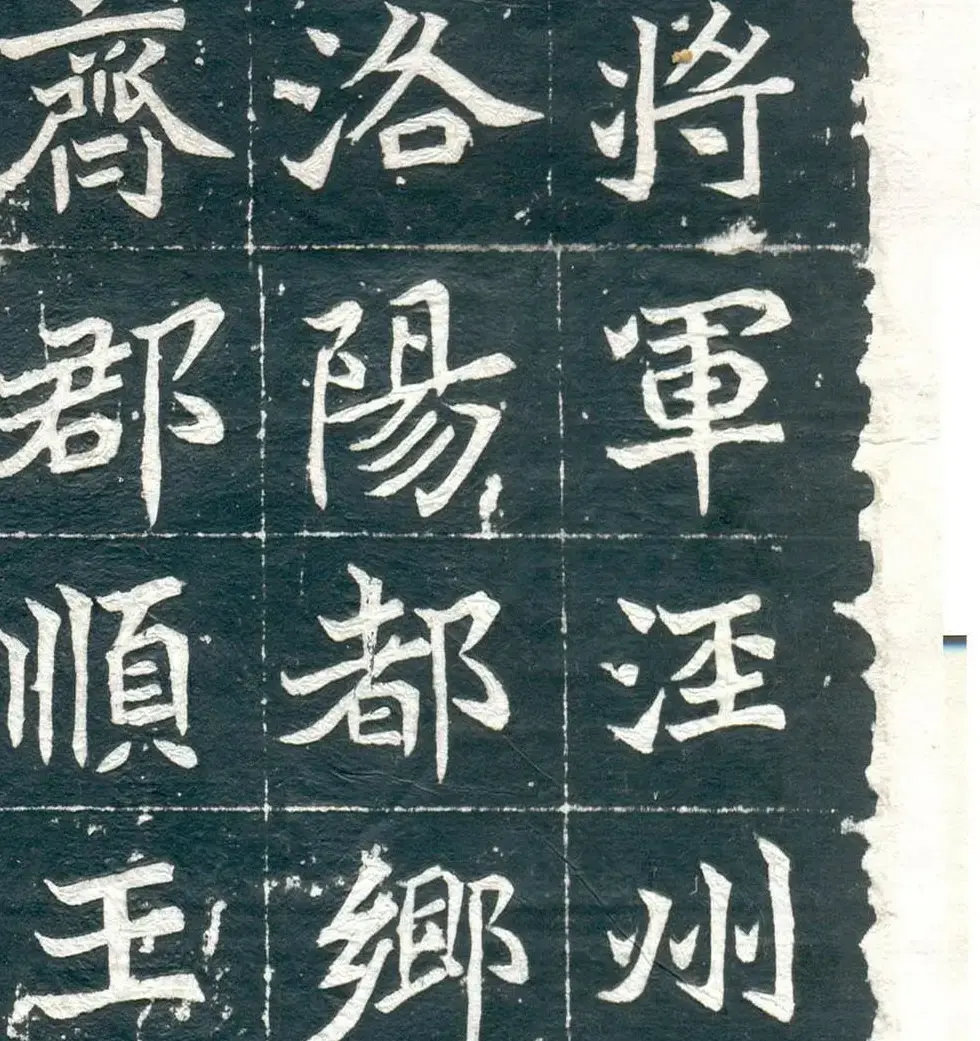 將軍涇州
洛陽都鄉
齊郡順王